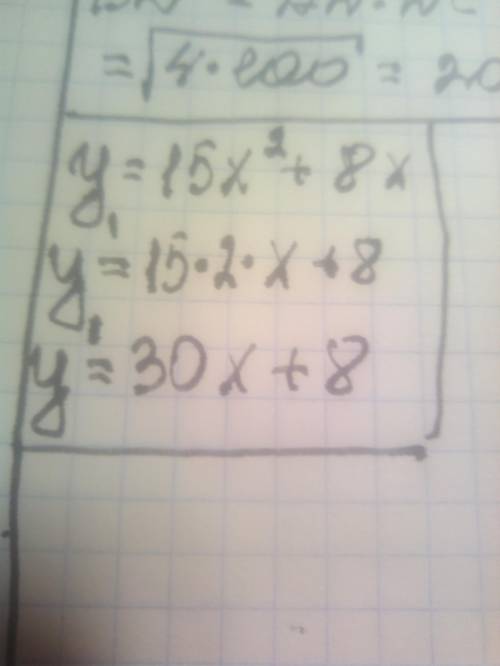 = √4·100 = 20
y = 15x² + 8x
y' = 15·2·x + 8
y' = 30x + 8